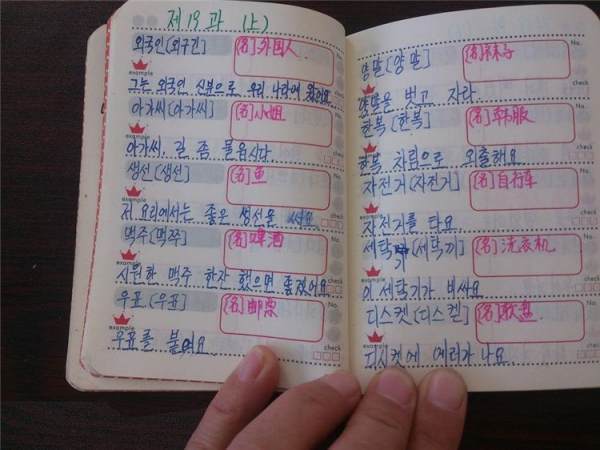 제 19 과 (上)
외국인 [외구긴] (名) 外国人
example
그는 외국인 신분으로 우리 나라에 왔어요.
check
아가씨 [아가씨] (名) 小姐
example
아가씨, 길 좀 물읍시다.
check
생선 [생선] (名) 鱼
example
저 요리에서는 좋은 생선을 써요.
check
맥주 [맥쭈] (名) 啤酒
No.
example
시원한 맥주 한잔 했으면 좋겠어요
check
우표 [우표] (名) 邮票
No.
example
우표를 붙여요.
check
양말 [양말] (名) 袜子
No.
example
양말을 벗고 자라.
check
한복 [한복] (名) 韩服
No.
example
한복 차림으로 외출해요.
check
자전거 [자전거] (名) 自行车
No.
example
자전거를 타요
check
세탁기 [세탁끼] (名) 洗衣机
No.
example
이 세탁기가 비싸요
check
디스켓 [디스켇] (名) 软盘
No.
example
디시켓에 에러가 나요.
check